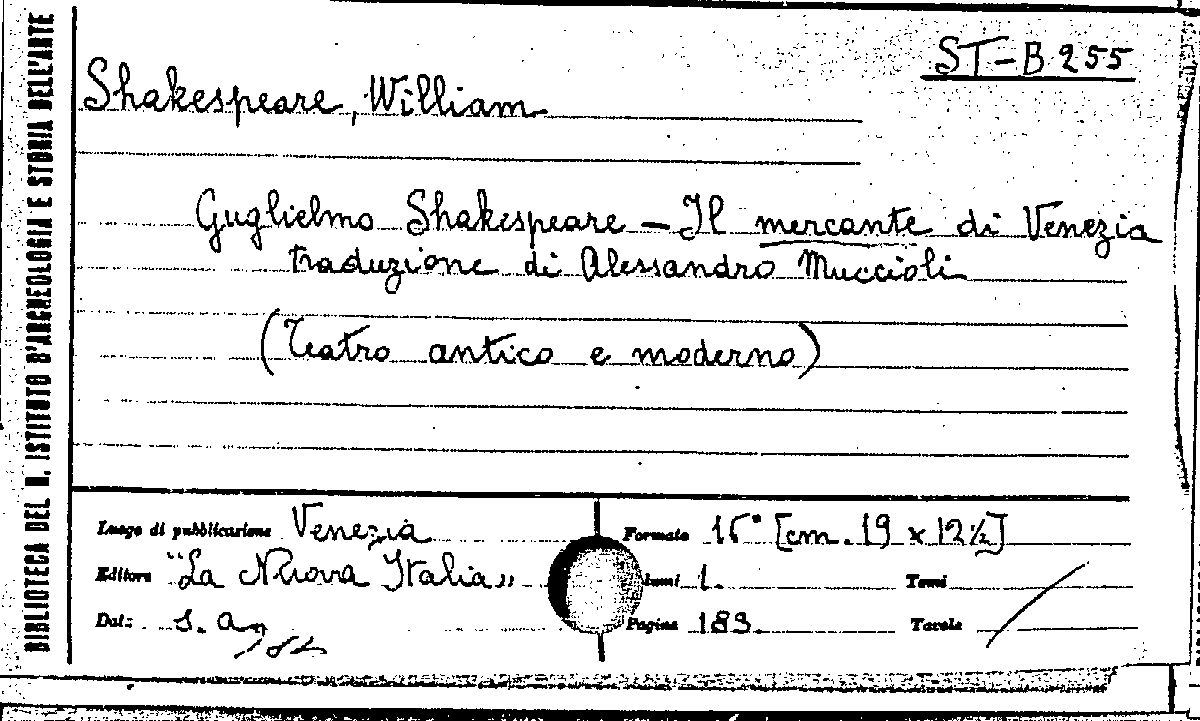 BIBLIOTECA DEL R. ISTITUTO D'ARCHEOLOGIA E STORIA DELL'ARTE
ST-B 255
Shakespeare, William
Guglielmo Shakespeare – Il mercante di Venezia
traduzione di Alessandro Muccioli
(Teatro antico e moderno)
Luogo di pubblicazione Venezia
Formato 16° [cm. 19 x 12½]
Editore "La Nuova Italia"
1.
Tomi
Data s. a.
Pagine 189.
Tavole